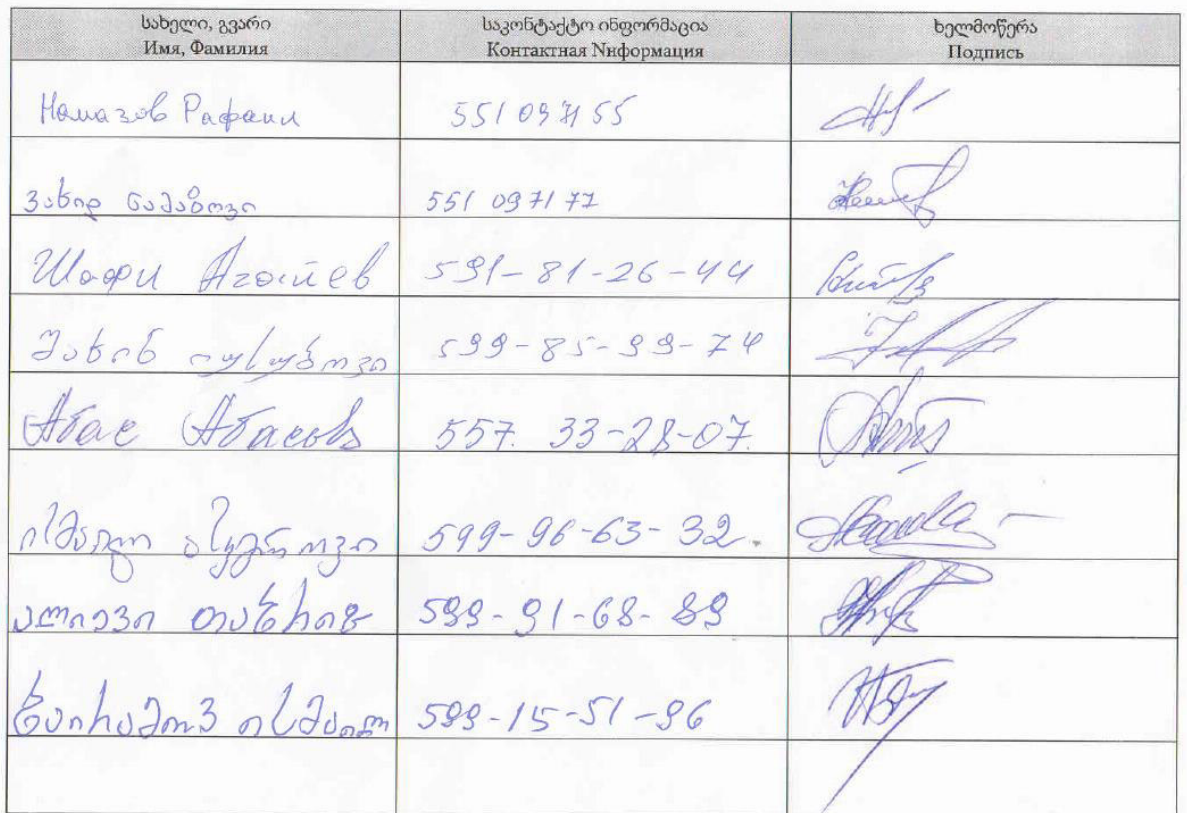 სახელი, გვარი
Имя, Фамилия
საკონტაქტო ინფორმაცია
Контактная Nнформация
ხელმოწერა
Подпись
Намазов Рафаил 551 097155
ვახიდ ნამაზოვი 551 097177
Шафи 591-81-26-44
იუსუბოვი 599-85-99-74
Абас Абасов 557. 33-28-07.
599-96-63-32.
ალიევი 599-91-68-89
ბაირამოვ ისმაილ 599-15-51-96